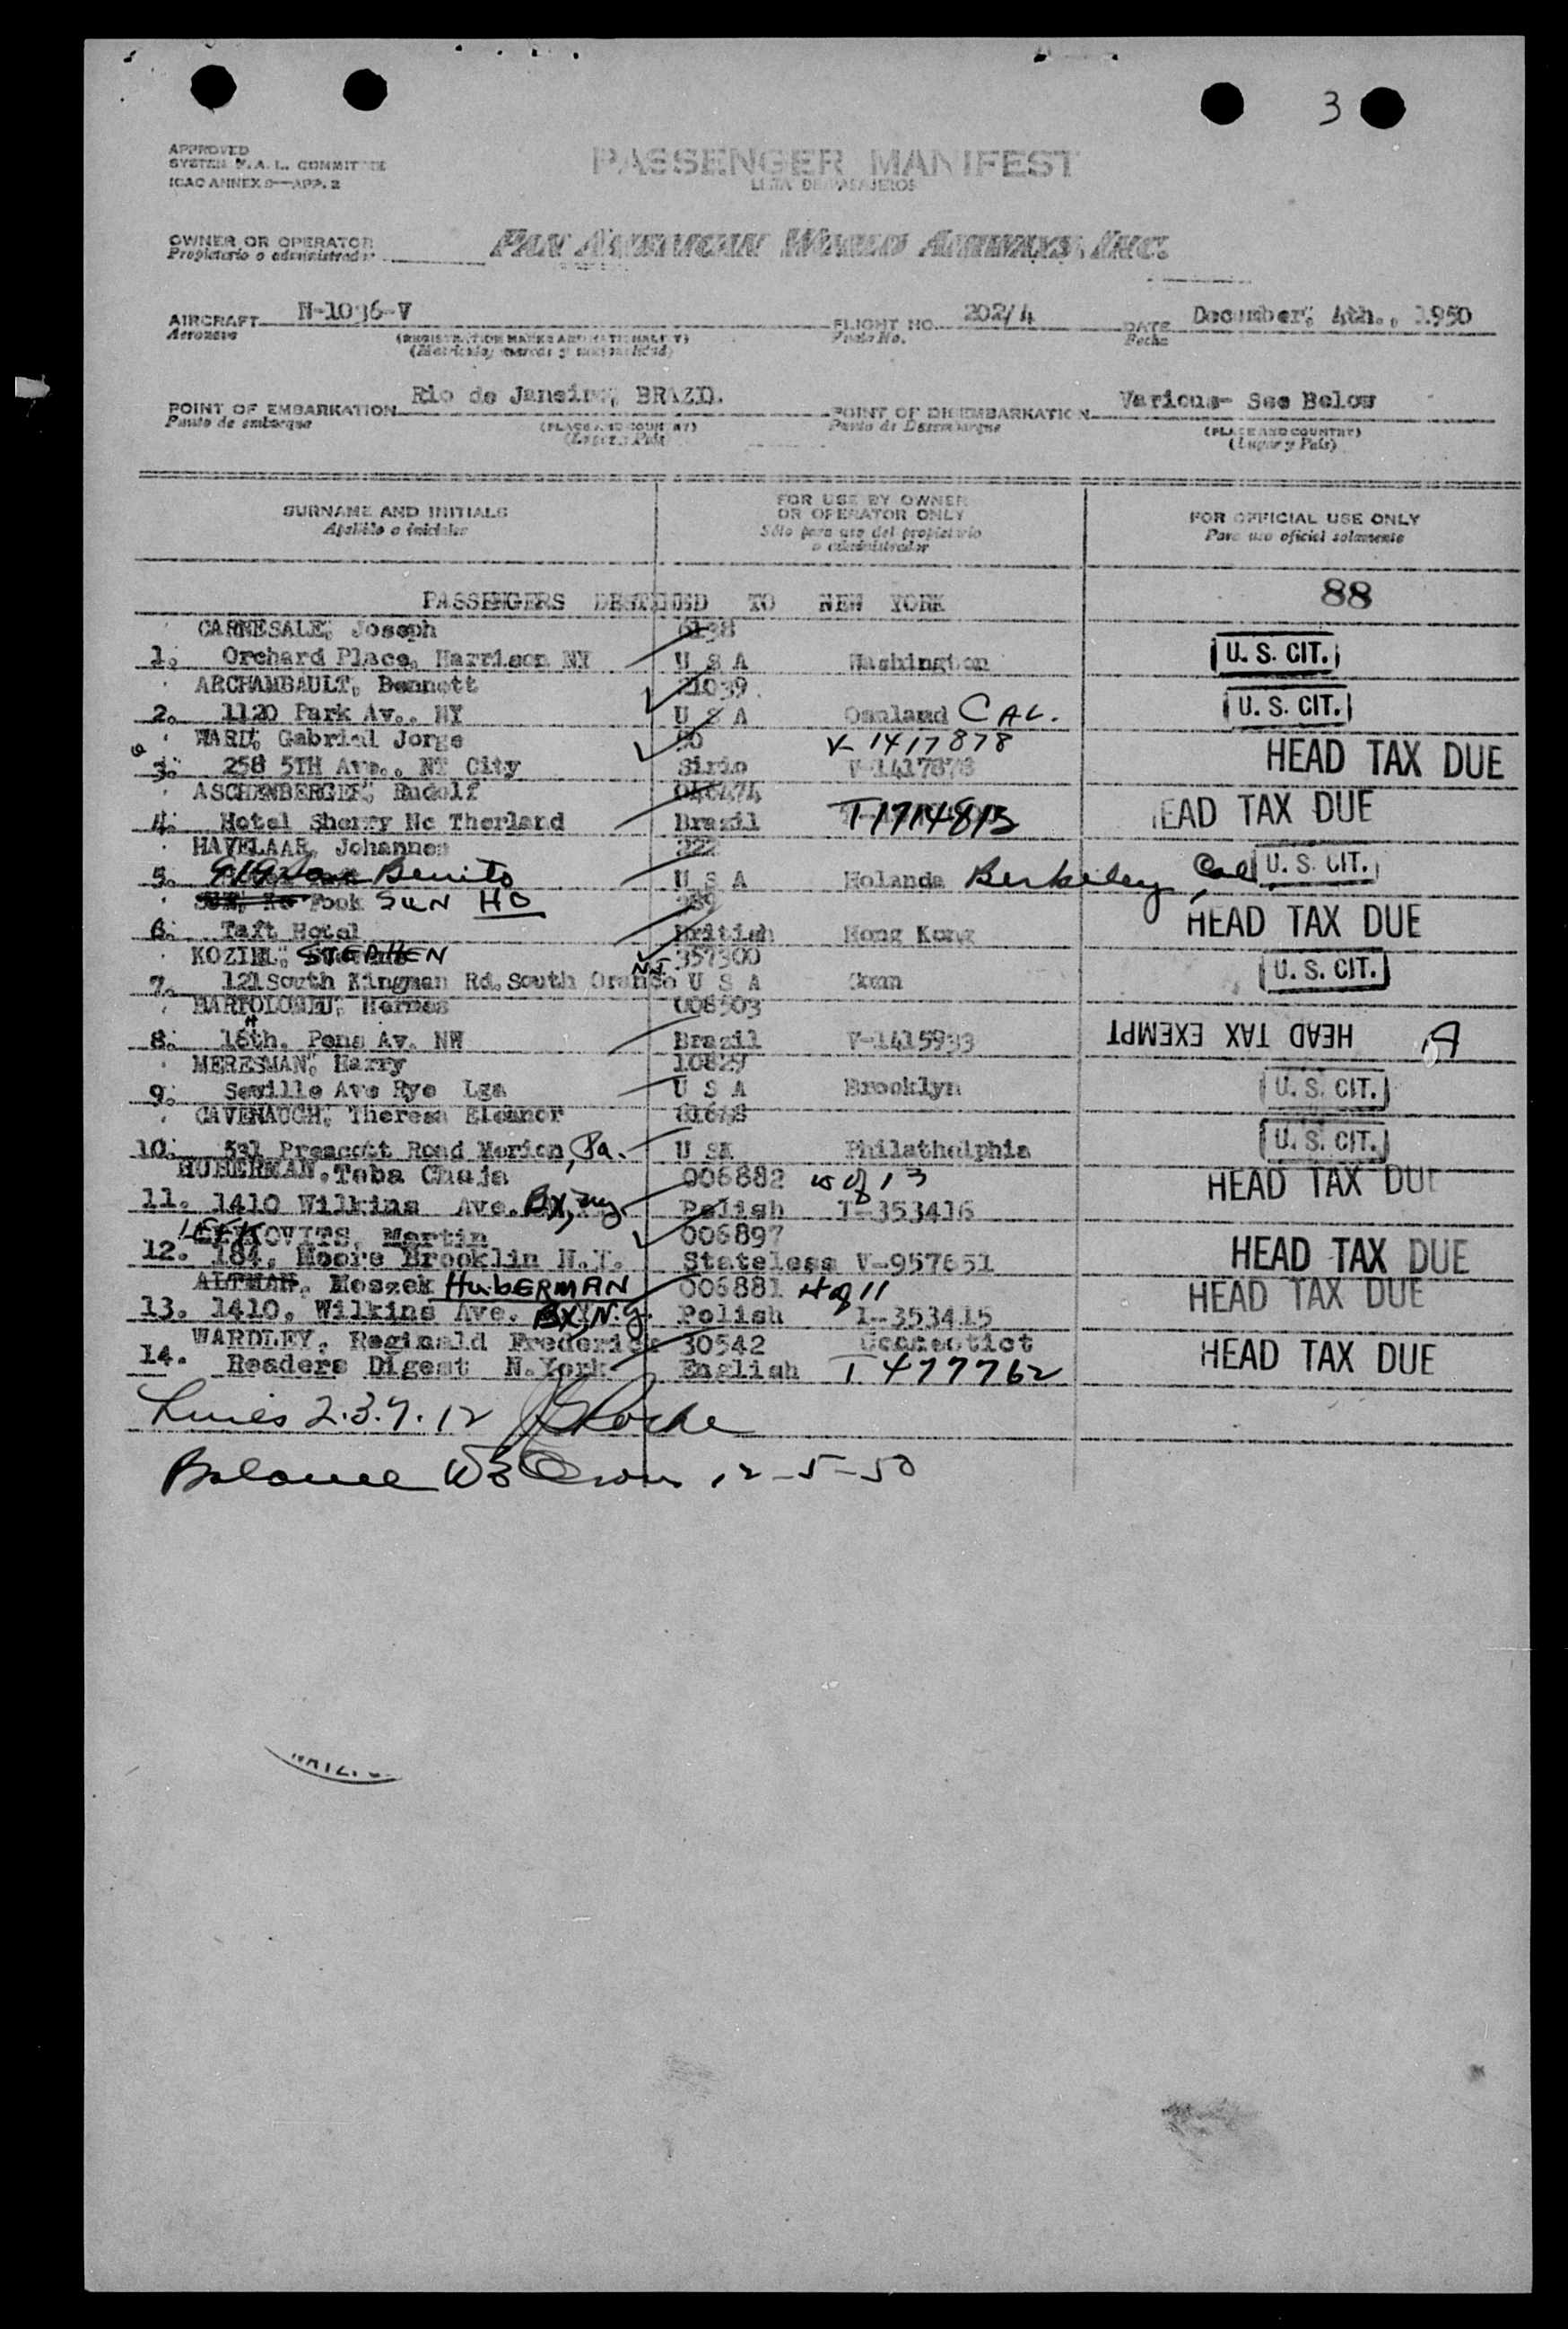 3
APPROVED
SYSTEM F.A.L. COMMITTEE
ICAO ANNEX 9—APP. 2
PASSENGER MANIFEST
LISTA DE PASAJEROS
OWNER OR OPERATOR PAN AMERICAN WORLD AIRWAYS, INC.
Propietario o administrador
AIRCRAFT N-1036-V FLIGHT NO. 202/4 DATE December, 4th., 1950
Aeronave (REGISTRATION MARKS AND NATIONALITY) Vuelo No. Fecha
(Matricula, marcas y nacionalidad)
POINT OF EMBARKATION Rio de Janeiro, BRAZIL POINT OF DISEMBARKATION Various- See Below
Punto de embarque (PLACE AND COUNTRY) Punto de Desembarque (PLACE AND COUNTRY)
(Lugar y País) (Lugar y País)
SURNAME AND INITIALS FOR USE BY OWNER OR OPERATOR ONLY FOR OFFICIAL USE ONLY
Apellido e iniciales Sólo para uso del propietario o administrador Para uso oficial solamente
PASSENGERS DESTINED TO NEW YORK 88
CARNESALE, Joseph 6138
1. Orchard Place, Harrison NY U S A Washington U. S. CIT.
ARCHAMBAULT, Bennett 21039
2. 1120 Park Av.. NY U S A Oakland CAL. U. S. CIT.
WARD, Gabrial Jorge 50 V-1417878
3. 258 5TH Ave., NY City Sirio V-1417878 HEAD TAX DUE
ASCHENBERGER, Rudolf 048474
4. Hotel Sherry Ne Therland Brazil T1714813 EAD TAX DUE
HAVELAAR, Johannes 222
5. 919 San Benito U S A Holanda Berkeley, Cal U. S. CIT.
Fook SUN HO 239
6. Taft Hotel British Hong Kong HEAD TAX DUE
KOZIEL, STEPHEN 357300
7. 121 South Kingman Rd. South Orange NJ U S A Conn U. S. CIT.
BARTOLOMEU, Hermes 008503
8. 16th. Pens Av. NW Brazil V-1415933 HEAD TAX EXEMPT A
MERESMAN, Harry 10829
9. Seville Ave Rye Lga U S A Brooklyn U. S. CIT.
CAVENAUGH, Theresa Eleanor 81648
10. 531 Prescott Road Merion, Pa. U SA Philathelphia U. S. CIT.
HUBERMAN, Toba Chaja 006882 w of 13 HEAD TAX DUE
11. 1410 Wilkins Ave. BX, NY. Polish I-353416
LEFKOVITS, Martin 006897
12. 184, Moore Brooklin N.Y. Stateless V-957651 HEAD TAX DUE
ALTMAN, Moszek HUBERMAN 006881 H of 11 HEAD TAX DUE
13. 1410, Wilkins Ave. BX, N.Y. Polish I-353415
WARDLEY, Reginald Frederick 30542 Connectict
14. Readers Digest N.York English T 477762 HEAD TAX DUE
Lines 2.3.7.12
Balance 12-5-50